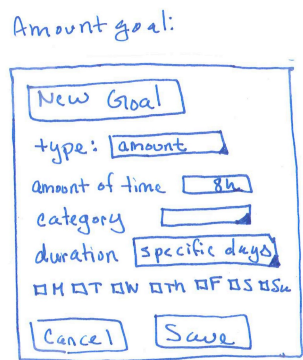 Amount goal:
New Goal
type: amount
amount of time 8h
category
duration specific days
M T W Th F S Su
Cancel Save